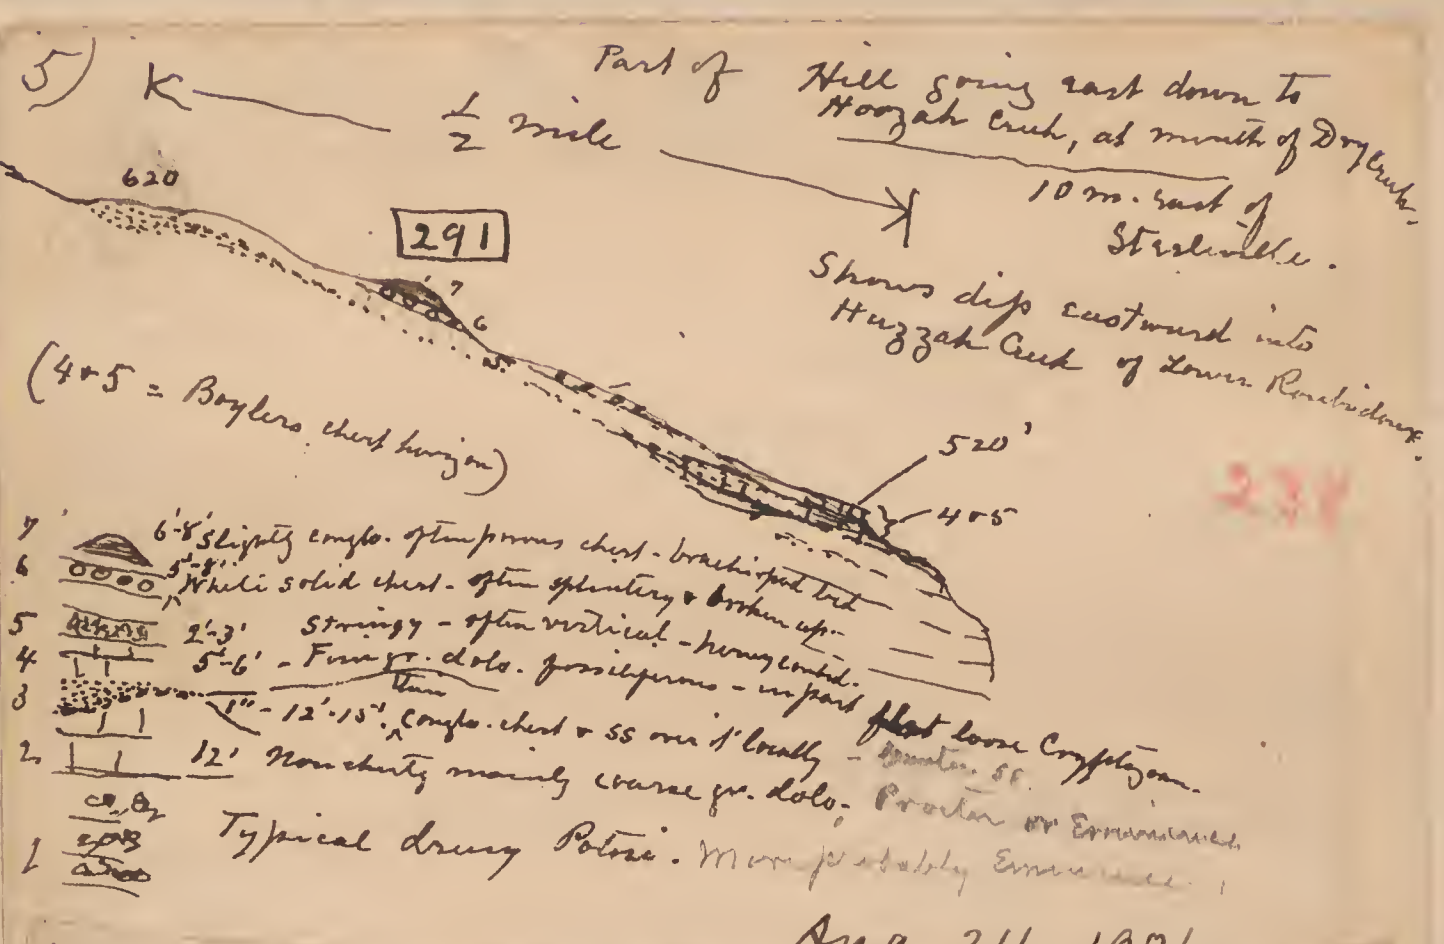 5)
Part of Hill going east down to
Hoozah Creek, at mouth of Dry Creek.
1/2 mile
10 m. East of
Steeleville.
620
291
Shows dip eastward into
Huzzah Creek of Lower Roubidoux.
7
6
5
(4 & 5 = Baylers chert horizon)
520'
4 & 5
238
7 6'-8' Slightly conglo. often porous chert - brachiopod bed
6 5'-8' White solid chert - often splintery & broken up -
5 2'-3' Stringy - often vertical - honeycombd.
4 5'-6' - Fine gr. dolo. fossiliferous - in part flat loose Cryptozoan.
3 1" - 12'-15'. thin Conglo. chert & ss over it locally - Gunter ss.
2 12' Non cherty mainly coarse gr. dolo. Proctor or Eminence
1 Typical drusy Potosi. More probably Eminence.